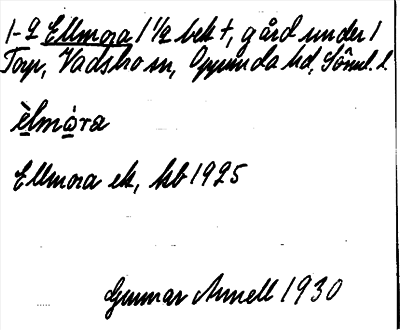 1-2 Ellmora 1 1/2 bek †, gård under 1
Torp, Vadsbro sn, Oppunda hd, Söml. l.
èlmòra
Ellmora ek, kb 1925
Gunnar Annell 1930